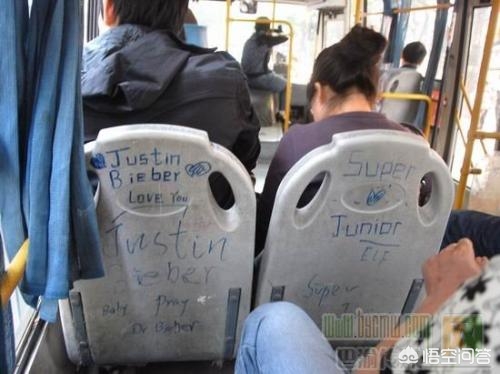 Justin
Bieber
LOVE YOU
Justin
Bieber
Baby Pray
Dr Bieber
Super
Junior
ELF
Super
悟空问答